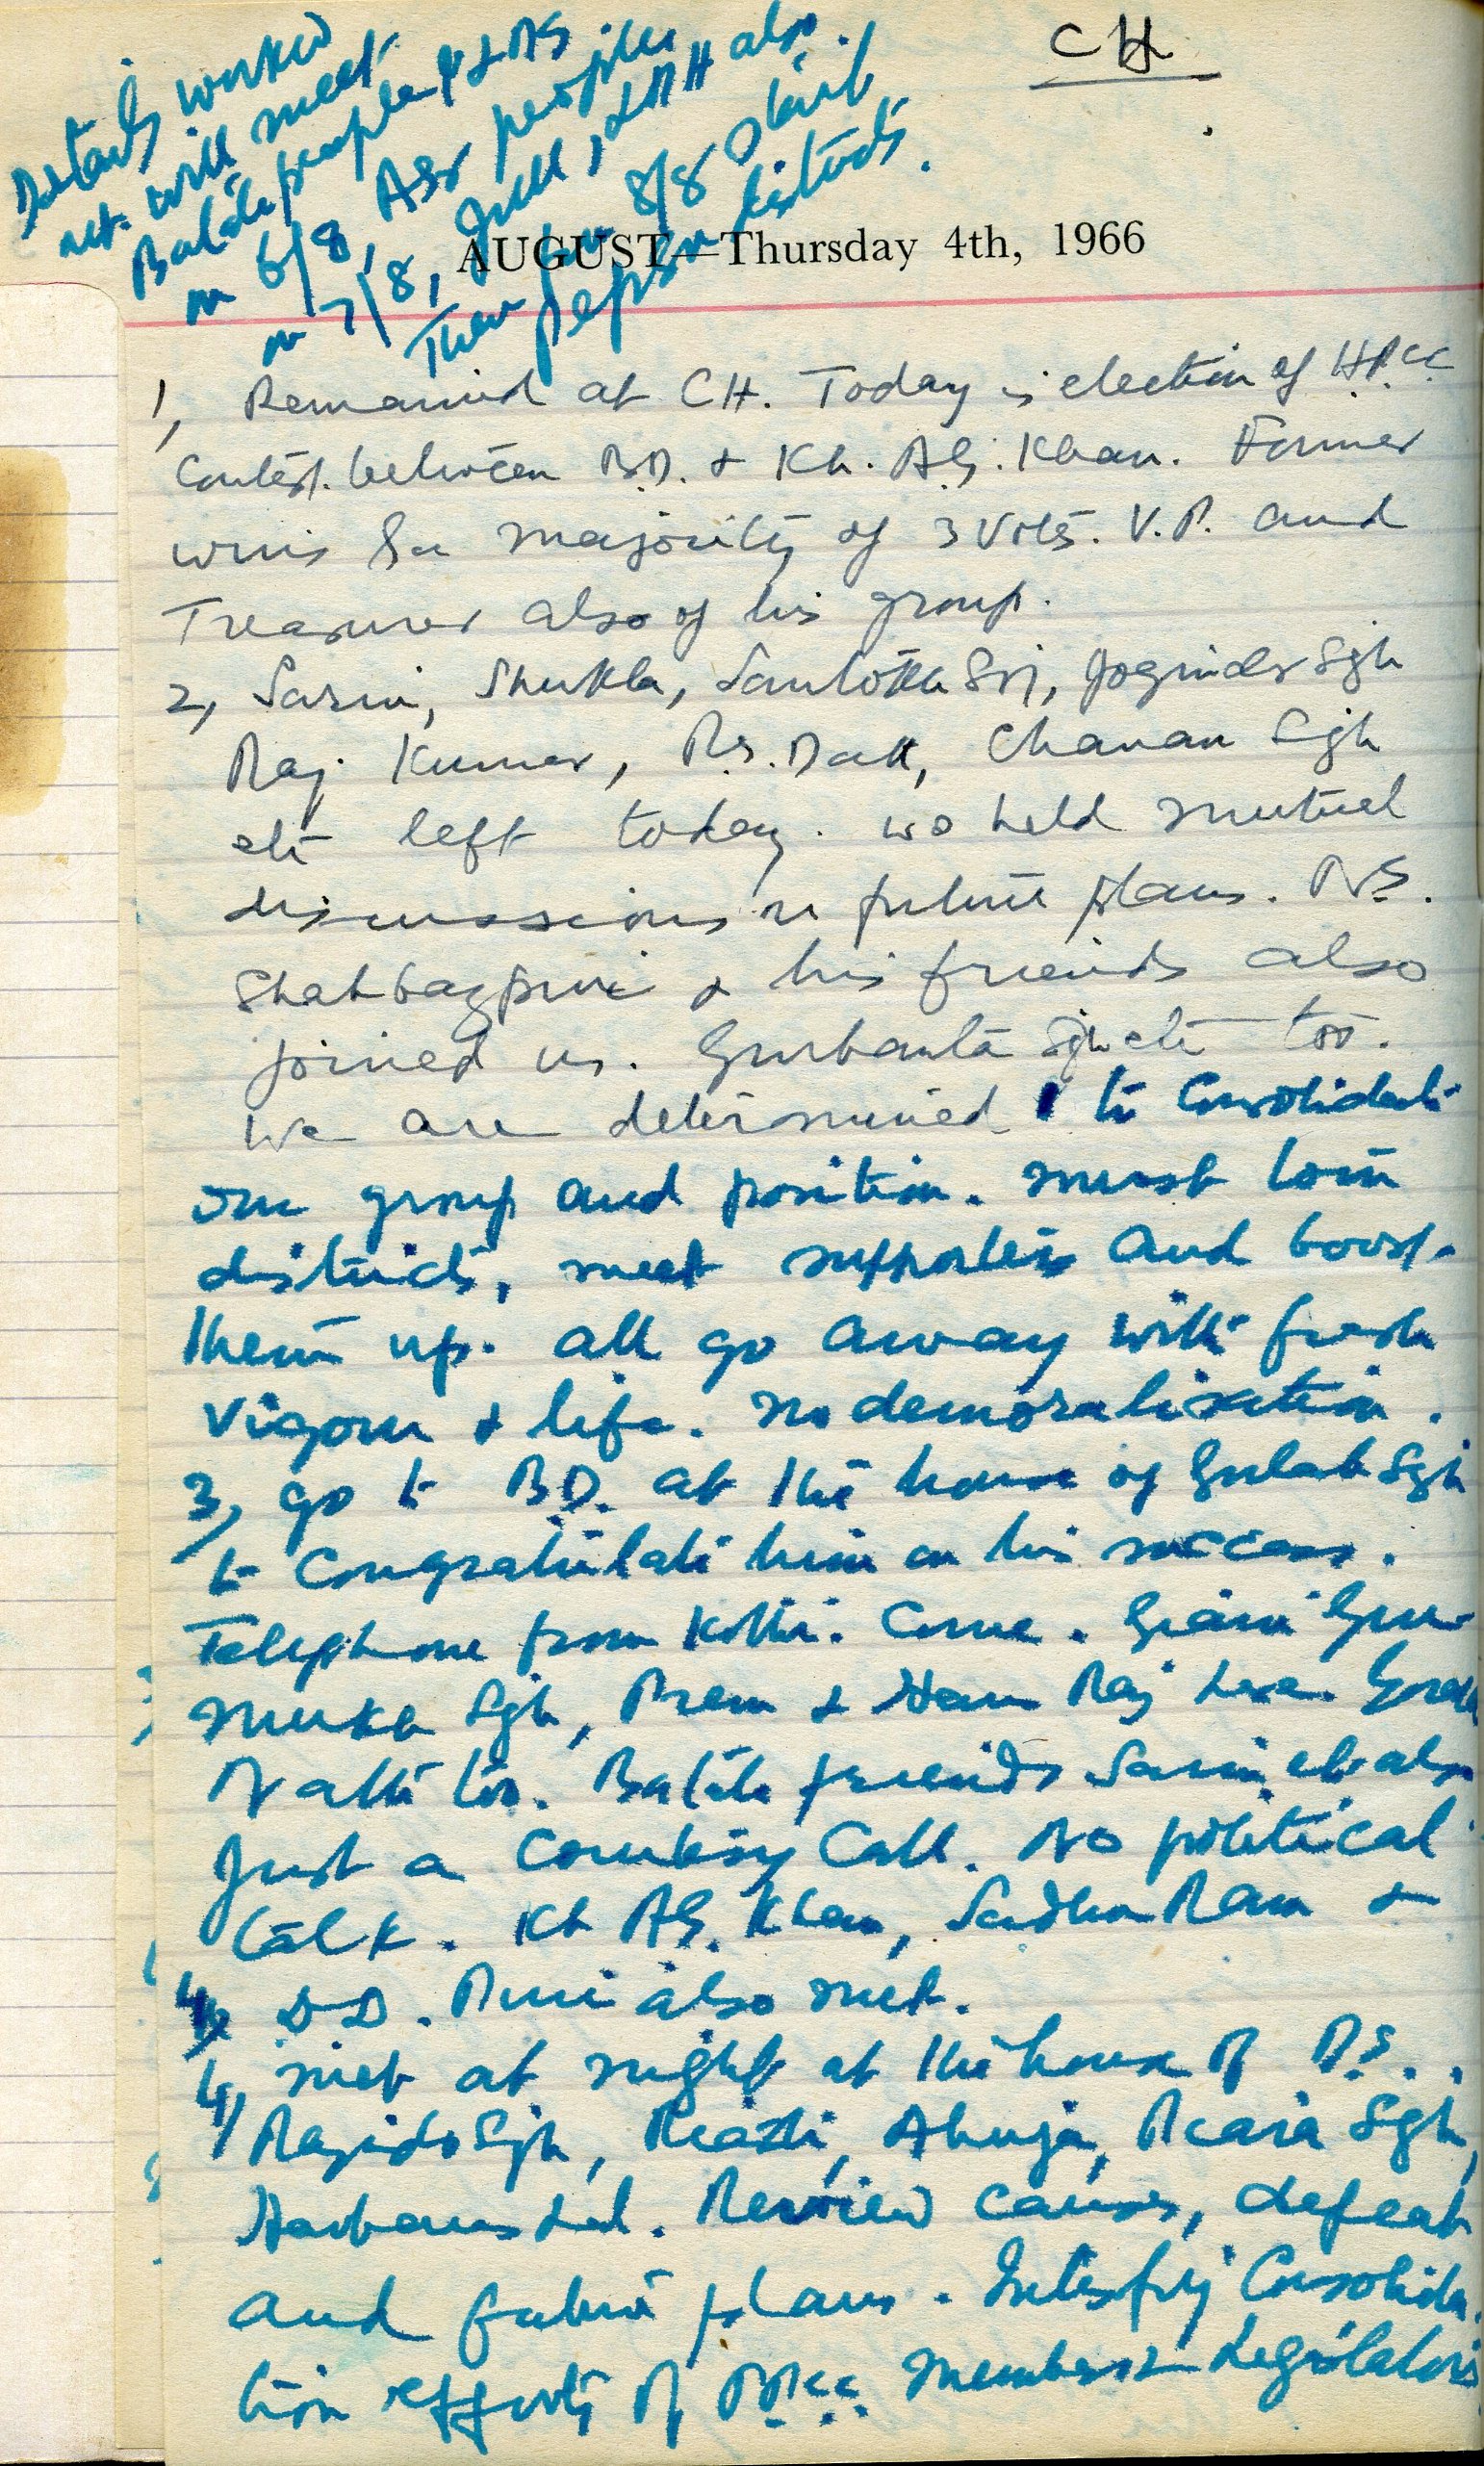 CH
Details worked
out. will meet
Batala people & LDS
on 6/8, Asr people
on 7/8, Jull, LDH also.
Then from 8/8 start
Pepsu districts.
AUGUST—Thursday 4th, 1966
1, Remained at CH. Today is election of HPCC
Contest. between B.D. & Kh. A.G. Khan. Former
wins by a majority of 3 votes. V.P. and
Treasurer also of his group.
2, Sarin, Shukla, Santokh Sgh, Joginder Sgh
Raj Kumar, P.S. Datt, Chanan Sgh
etc left today. We held mutual
discussions re future plans. N.S.
Shahbazpuri & his friends also
joined us. Gurbanta Sgh etc too.
We are determined to consolidate
our group and position. Must tour
districts, meet supporters and boost
them up. All go away with fresh
vigour & life. No demoralisation.
3, go to B.D. at the house of Gulab Sgh
to congratulate him on his success.
Telephone from Kothi. Come. Giani Gur-
mukh Sgh, Prem & Hans Raj here. Gorakh
Nath too. Batala friends Sarin etc also
Just a Courtesy Call. No political
talk. Kh A.G. Khan, Sadhu Ram &
D.D. Puri also met.
4, met at night at the house of P.S.
Rajinder Sgh, Reasti, Ahuja, Piara Sgh,
Harbans Lal. Review causes, defeat
and future plans. Intensify Consolida-
tion efforts of PPCC members & Legislators